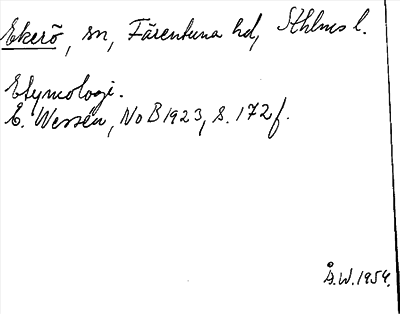 Ekerö, sn, Färentuna hd, Sthlms l.
Etymologi.
E. Wessén, NoB 1923, s. 172 f.
Å.W. 1954.